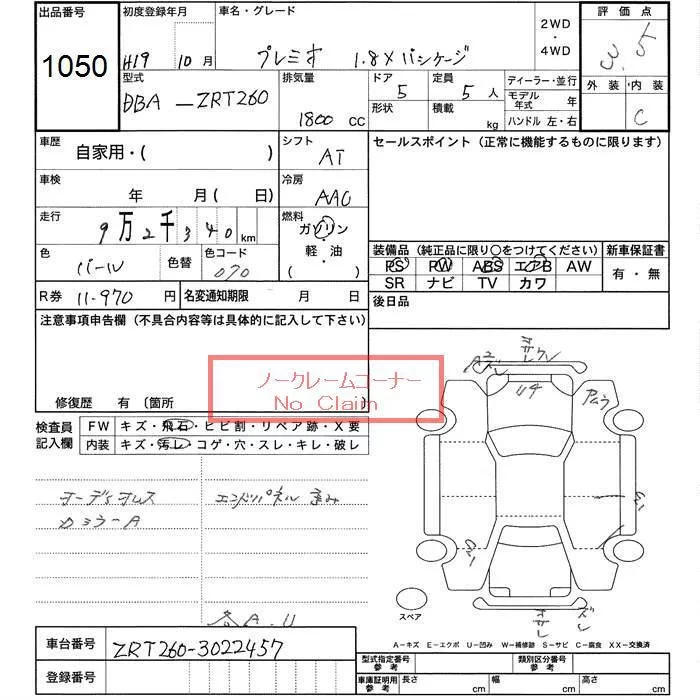 出品番号
1050
初度登録年月
H19 10 月
車名・グレード
プレミオ 1.8X パッケージ
2WD
・
4WD
評価点
3.5
外装 内装
C
型式
DBA - ZRT260
排気量
1800 cc
ドア
5
形状
定員
5 人
積載
kg
ディーラー・並行
モデル年式 年
ハンドル 左・右
車歴
自家用・( )
シフト
AT
車検
年 月( 日)
冷房
AAC
走行
9万2千340 km
燃料
ガソリン
軽・油
( )
色
パール
色替
色コード
070
R券 11-970 円
名変通知期限 月 日
セールスポイント (正常に機能するものに限ります)
装備品 (純正品に限り○をつけてください)
PS PW ABS エアB AW
SR ナビ TV カワ
新車保証書
有・無
後日品
注意事項申告欄 (不具合内容等は具体的に記入して下さい)
ノークレームコーナー
No Claim
修復歴 有 〔箇所 〕
検査員
記入欄
FW キズ・飛石・ヒビ割・リペア跡・X要
内装 キズ・汚レ・コゲ・穴・スレ・キレ・破レ
オーディオレス
カラーA
エンドパネル 歪み
各A.U
スペア
A－キズ E－エクボ U－凹み W－補修跡 S－サビ C－腐食 XX－交換済
車台番号 ZRT260-3022457
登録番号
型式指定番号
参考
類別区分番号
参考
車庫証明用
参考
長さ cm
幅 cm
高さ cm